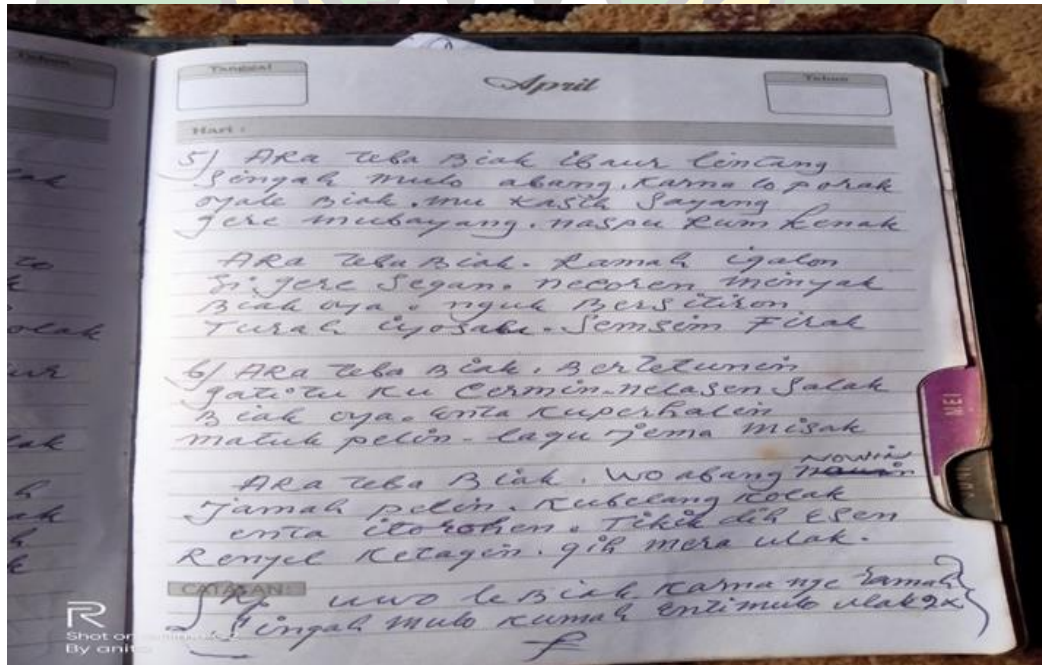 Tanggal
April
Tahun
Hari :
5) ARa teba Biak ibaur lintang
Singah mulo abang. Karna lo porak
oyale Biak. mu kasih Sayang
gere mubayang. naspu Rum kenak
ARa teba Biak. Ramah igalon
Si gere Segan. necoren minyak
Biak oya. nguk Bersitiron
Turah iyosahe. Semsim Firak
6) ARa teba Biak. Bertetunin
gatitu ku Cermin. nelasen Salak
Biak oya. enta Kuperhalin
matuk pelin. lagu jema misak
ARa teba Biak. wo abang NOWIN
Jamah pelin. Kubelang kolak
enta itorohen. Tikik dih ESen
Renyel Ketagen. gih mera ulak.
CATATAN :
uwo le Biak Karna nge ramah
Singah mulo kumah entimulo ulak 2x
Shot on
By anita